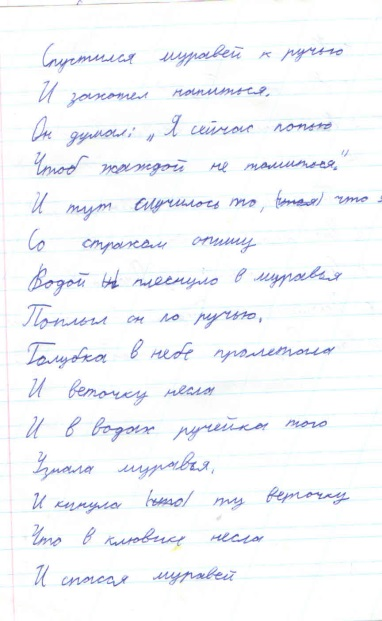 Спустился муравей к ручью
И захотел напиться.
Он думал: „Я сейчас попью
Чтоб жаждой не томиться."
И тут случилось то, что я
Со страхом опишу
Водой плеснуло в муравья
Поплыл он по ручью.
Голубка в небе пролетала
И веточку несла
И в водах ручейка того
Узнала муравья.
И кинула ту веточку
Что в клювике несла
И спасся муравей